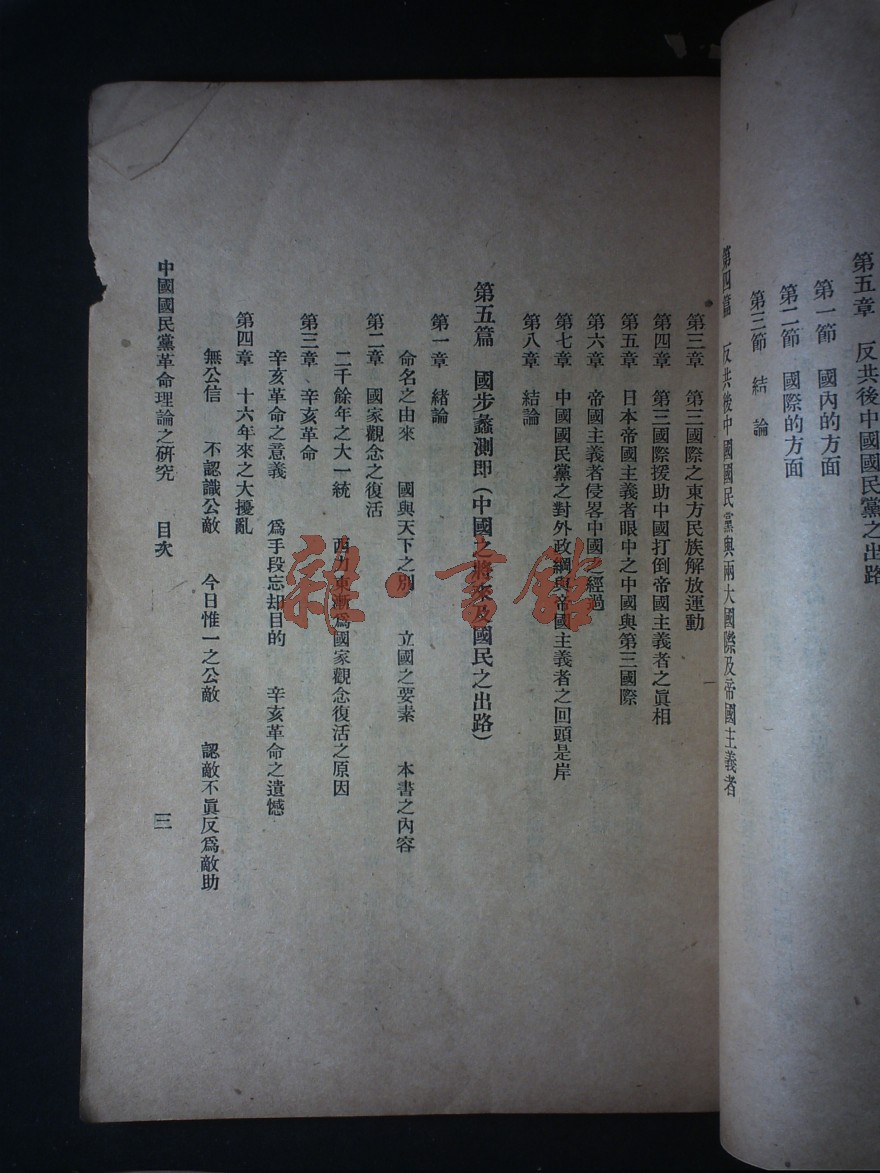 第五章　反共後中國國民黨之出路
第一節　國內的方面
第二節　國際的方面
第三節　結論
第四篇　反共後中國國民黨與兩大國際及帝國主義者
第三章　第三國際之東方民族解放運動
第四章　第三國際援助中國打倒帝國主義者之眞相
第五章　日本帝國主義者眼中之中國與第三國際
第六章　帝國主義者侵畧中國之經過
第七章　中國國民黨之對外政綱與帝國主義者之回頭是岸
第八章　結論
第五篇　國步蠡測即(中國之將來及國民之出路)
第一章　緒論
命名之由來　國與天下之別　立國之要素　本書之內容
第二章　國家觀念之復活
二千餘年之大一統　西力東漸爲國家觀念復活之原因
第三章　辛亥革命
辛亥革命之意義　爲手段忘却目的　辛亥革命之遺憾
第四章　十六年來之大擾亂
無公信　不認識公敵　今日惟一之公敵　認敵不眞反爲敵助
中國國民黨革命理論之研究　目次　三
雜·書館